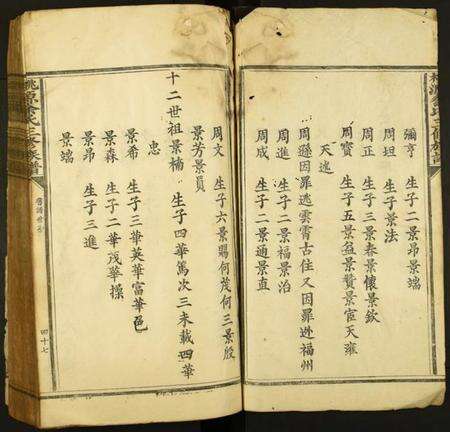 彌亨　生子二景昂景端
周坦　生子景法
周正　生子三景春景懷景欽
周寶　生子五景益景贊景宦天雍
天述
周遜因罪逃雲霄古住又因罪逃福州
周進　生子二景福景治
周成　生子二景通景直
周文　生子六景賜何茂何三景殷
景芳景員
十二世祖景楠　生子四華篤次三未載四華
忠
景希　生子三華英華富華邑
景森　生子二華茂華操
景昂　生子三進
景端
源 氏三修族譜
四十七